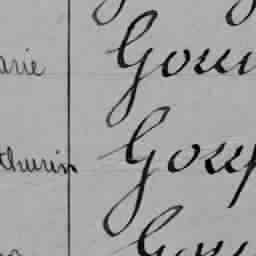 arie Gou
thurin Goup
Gou